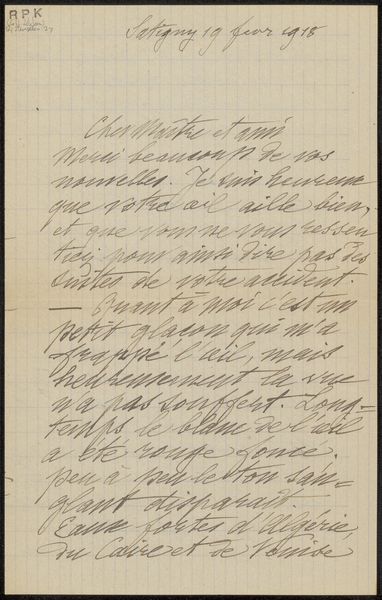 RPK
Satigny 19 fevr 1918
Cher Maître et ami
Merci beaucoup de vos
nouvelles. Je suis heureux
que votre œil aille bien,
et que vous ne vous ressen
tiez pour ainsi dire pas des
suites de votre accident.
— Quant à moi c'est un
petit glaçon qui m'a
frappé l'œil, mais
heureusement la vue
n'a pas souffert. Long-
temps le blanc de l'œil
a été rouge foncé.
peu à peu le ton san-
glant disparait
Eaux fortes d'Algérie,
du Caire et de Venise